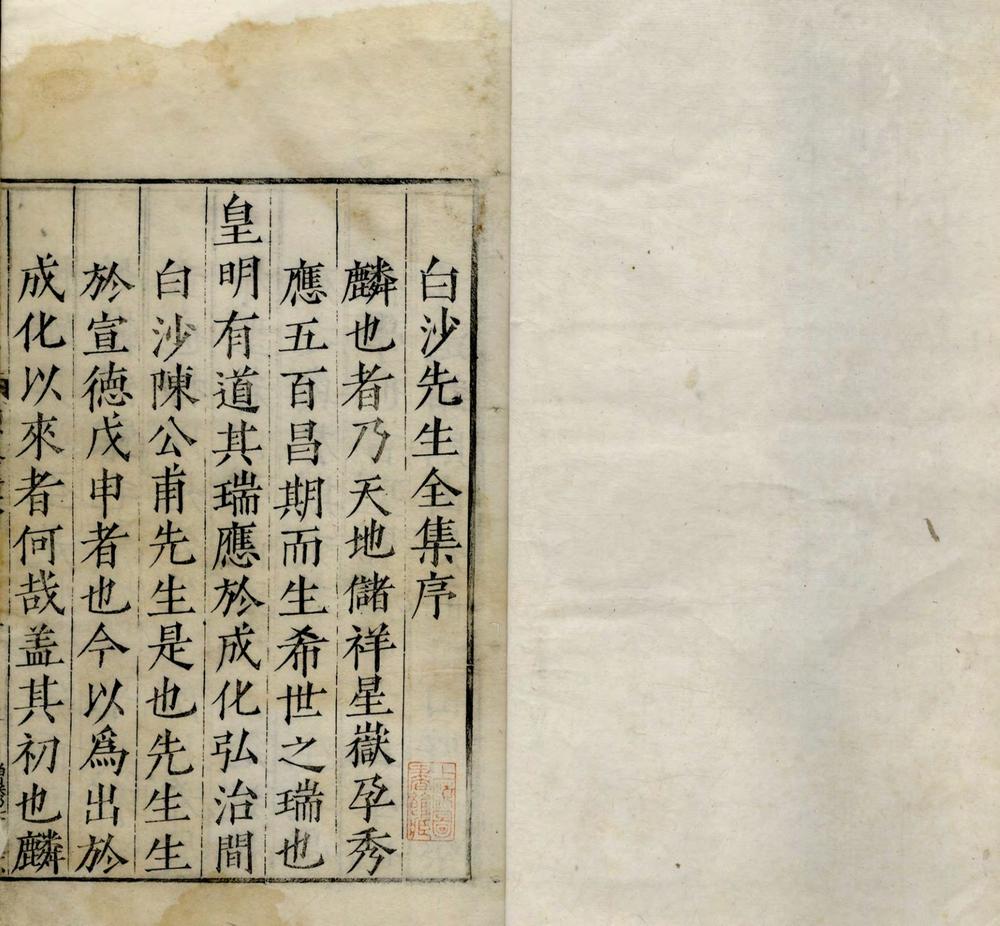 白沙先生全集序
麟也者乃天地儲祥星嶽孕秀
應五百昌期而生希世之瑞也
皇明有道其瑞應於成化弘治間
白沙陳公甫先生是也先生生
於宣德戊申者也今以爲出於
成化以來者何哉盖其初也麟